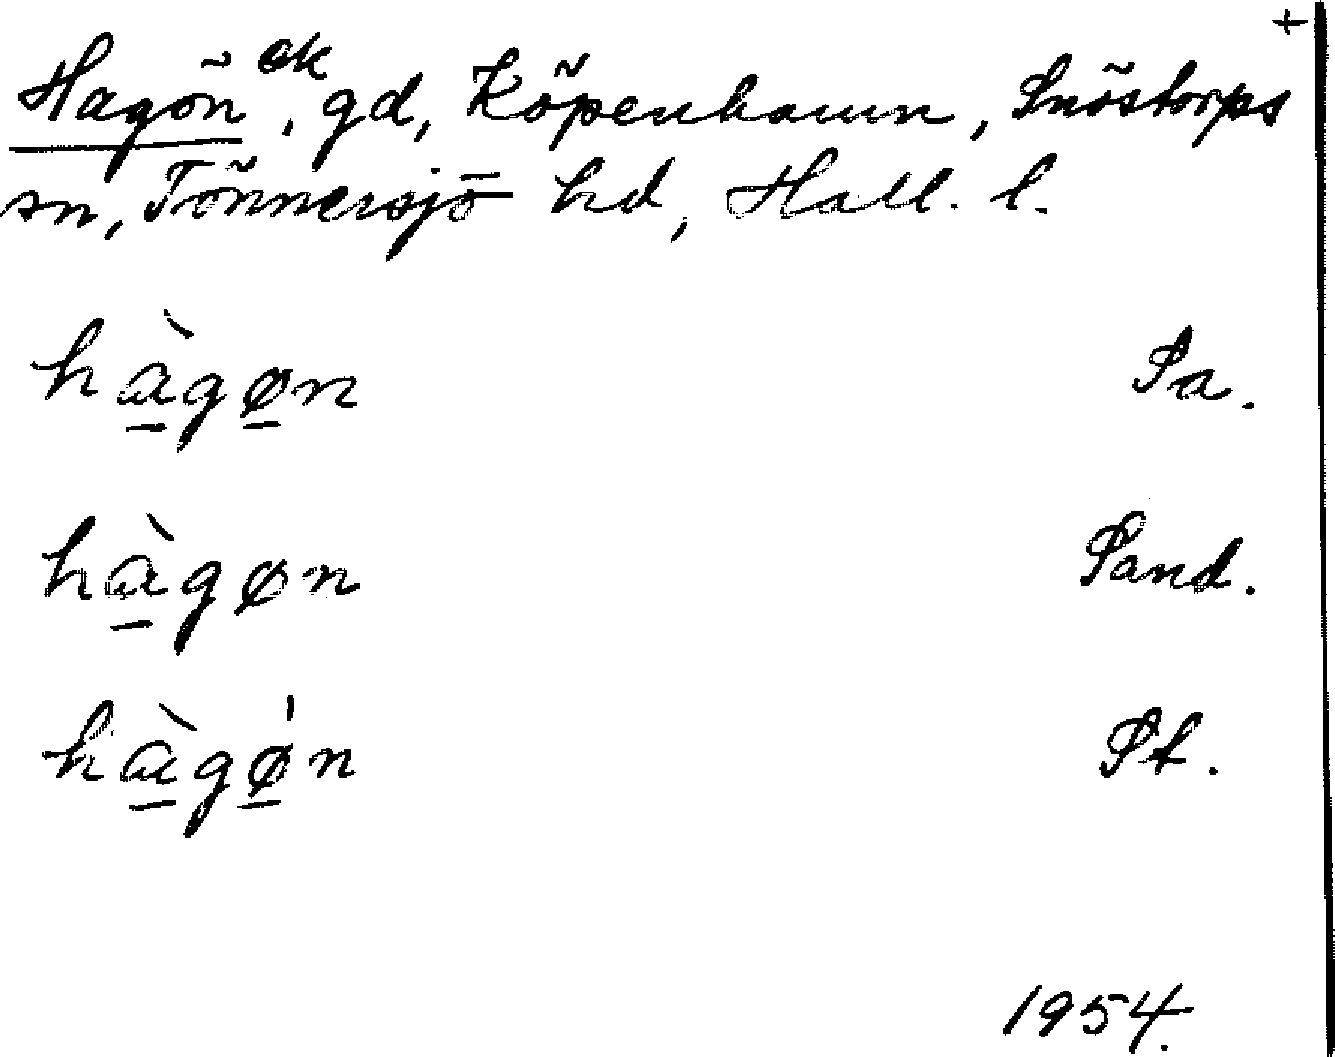 +
Hagön ek, gd, Köpenhamn, Snöstorps
sn, Tönnersjö hd, Hall. l.
hà̱gø̱n Sa.
hà̱gøn Sand.
hà̱gǿ̱n St.
1954.